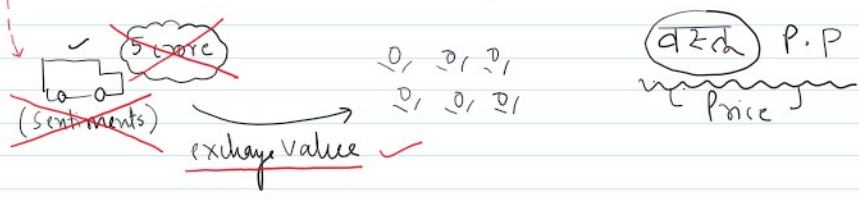 5 crore
(Sentiments)
exchage Value
वस्तू P.P
Price